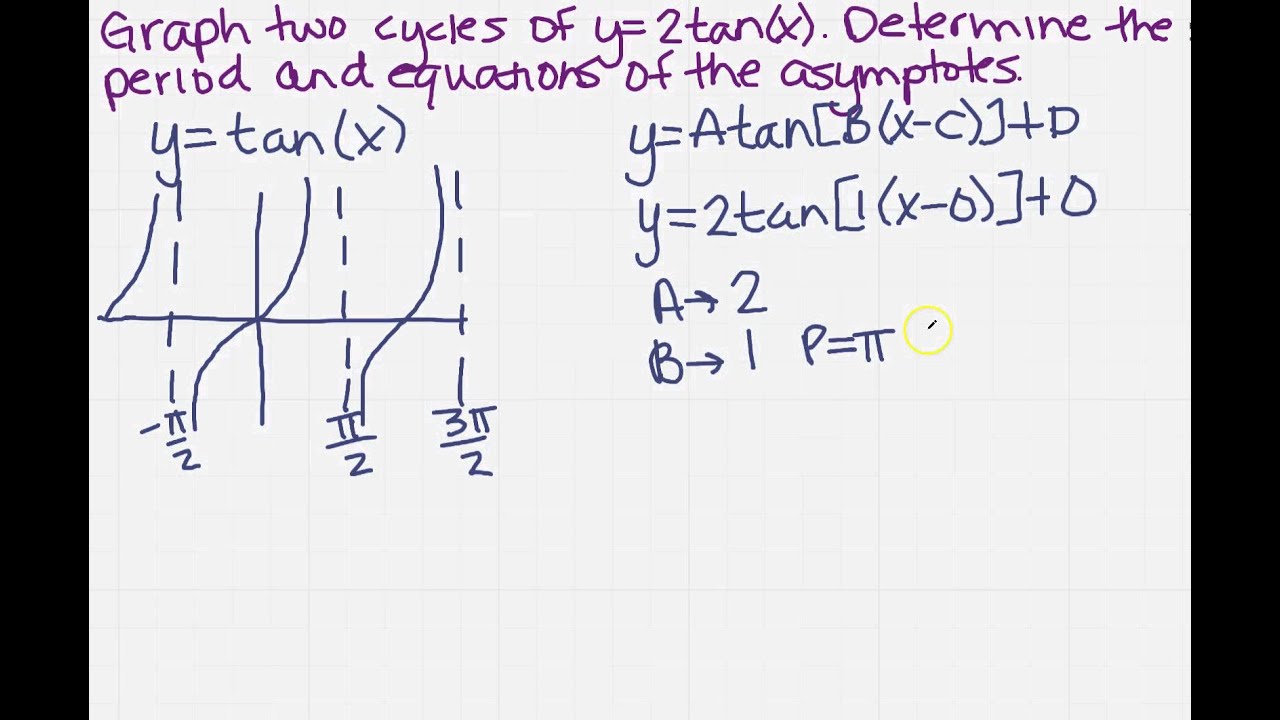 Graph two cycles of y=2tan(x). Determine the
period and equations of the asymptotes.
y=tan(x)
y=Atan[B(x-C)]+D
y=2tan[1(x-0)]+0
A→2
B→1 P=π
-π/2 π/2 3π/2